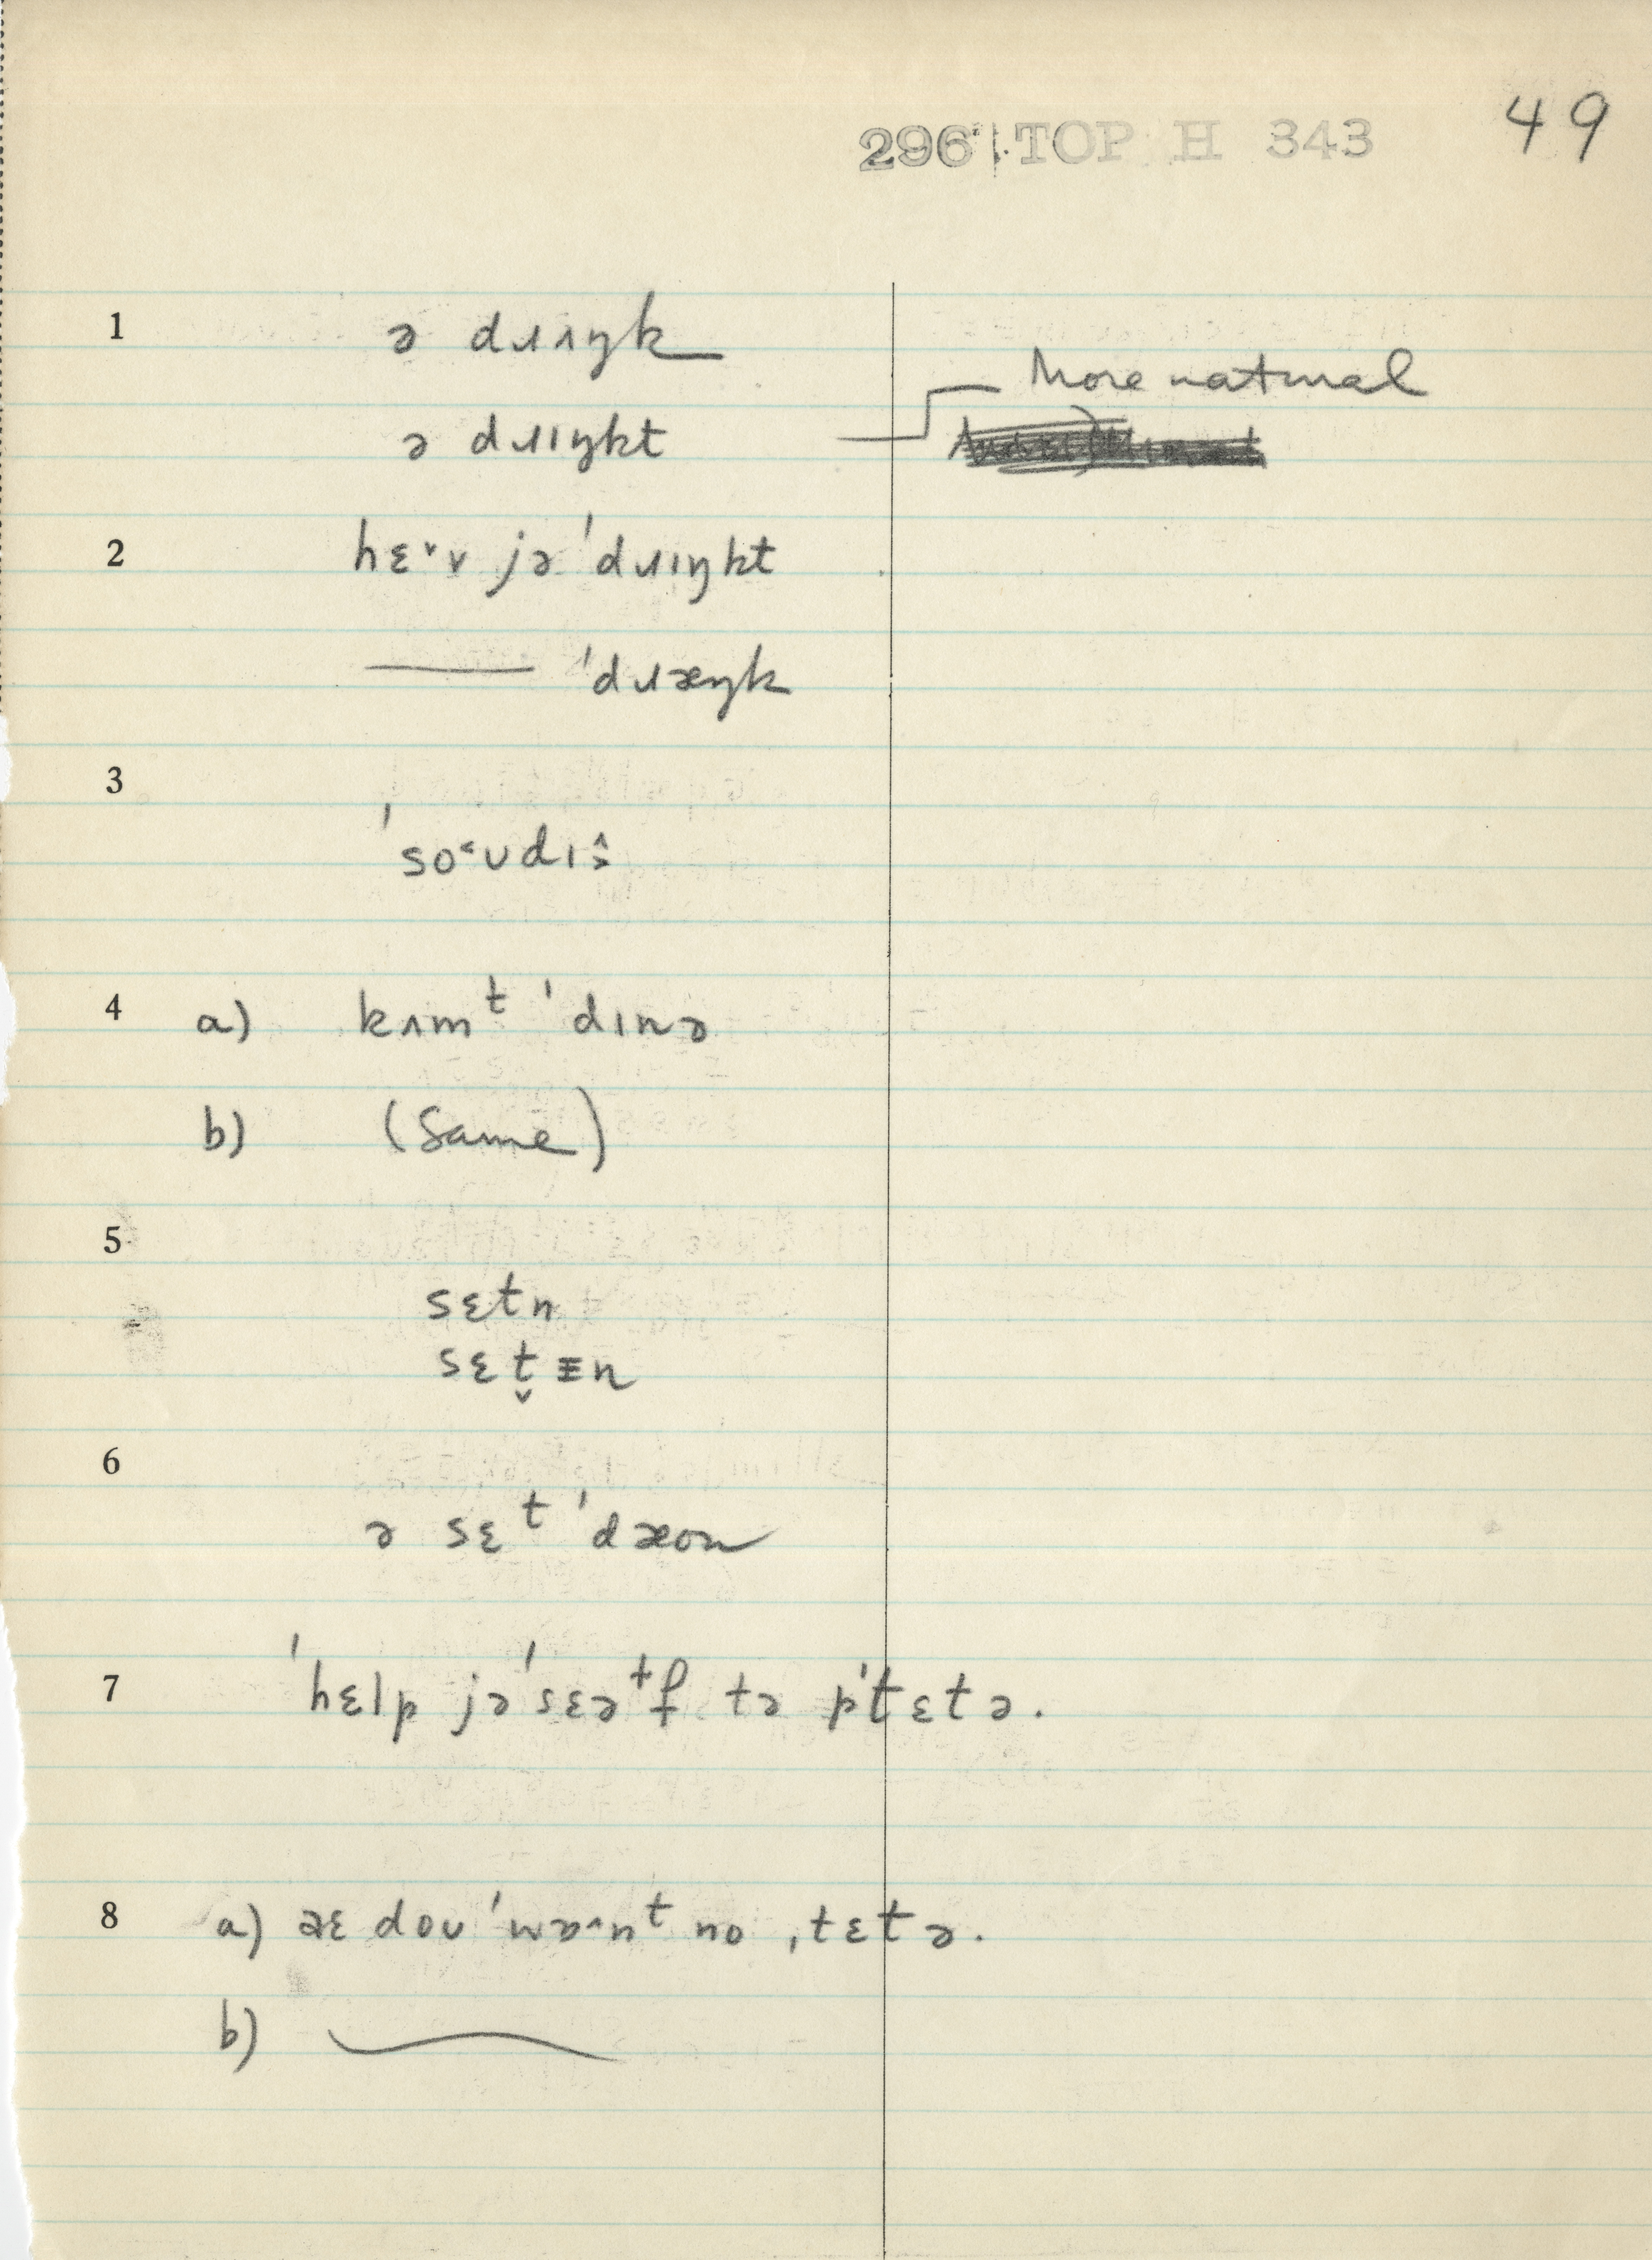 296 TOP H 343 49
1 ə dɹʌŋk
More natural
ə dɹɪŋkt
2 hɛ˅v jə ˈdɹɪŋkt
—— ˈdɹæŋk
3
ˈso˂ʊdɪ
4 a) kʌmᵗ ˈdɪnə
b) (Same)
5
sɛtn
sɛt̬ n
6
ə sɛᵗ ˈdæon
7 ˈhɛlp jəˈsɛəɫf tə pˈtɛtə.
8 a) doʊ ˈwɒ^nᵗ no ˌtɛtə.
b)